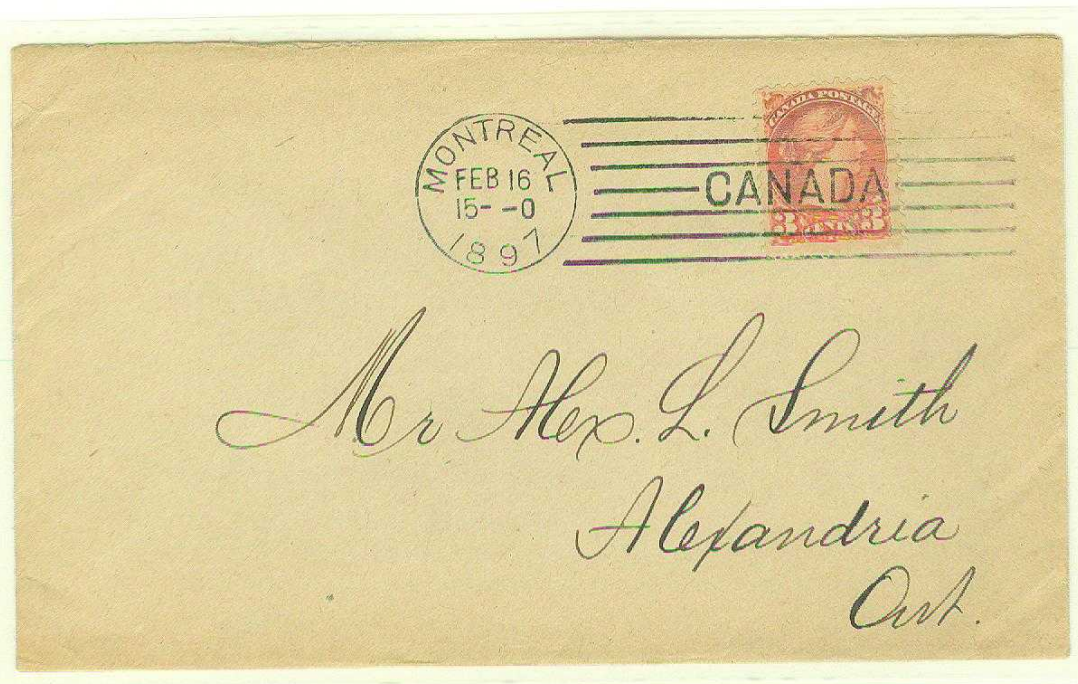 MONTREAL
FEB 16
15- -0
1897
CANADA
CANADA POSTAGE
3 CENTS 3
Mr Alex. L. Smith
Alexandria
Ont.